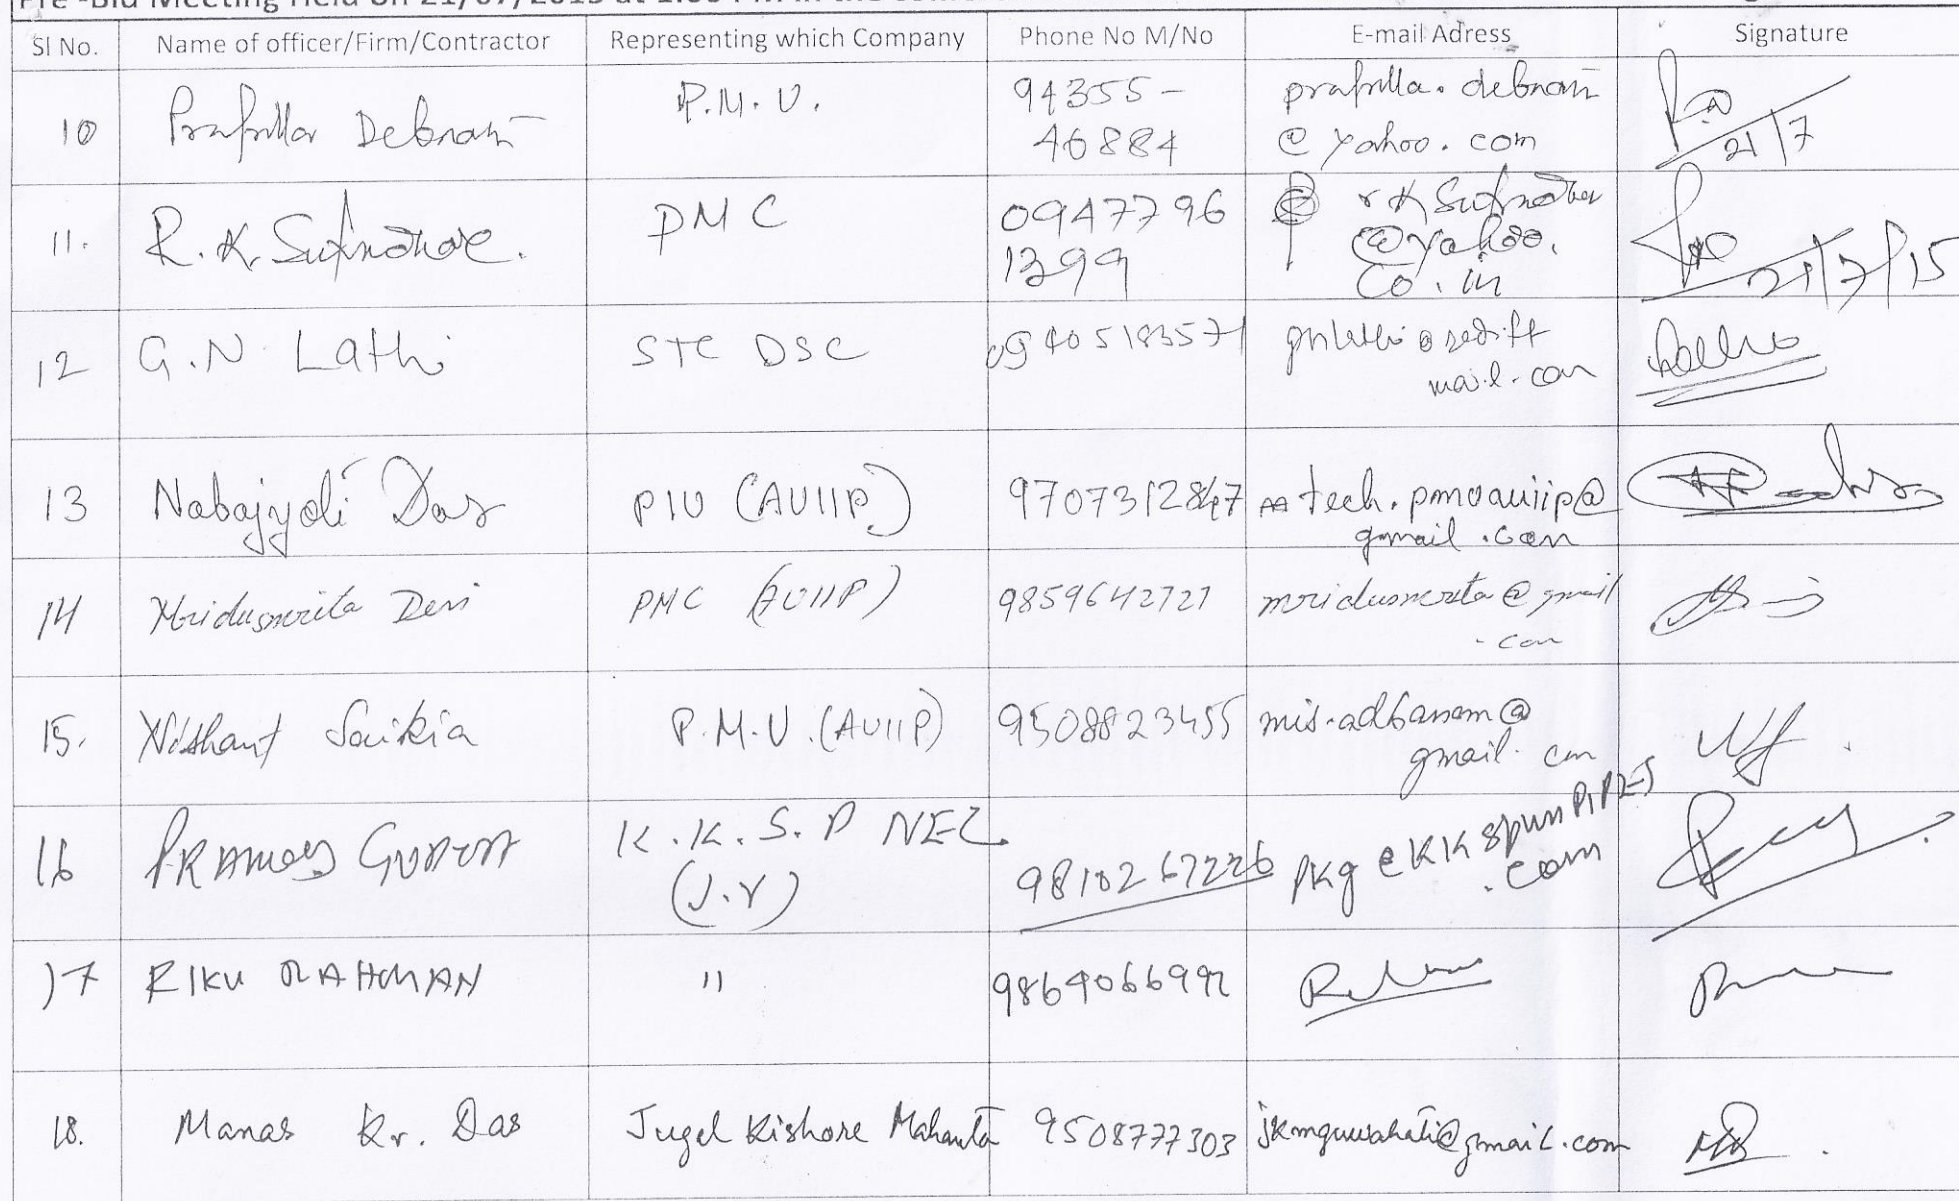 Pre -Bid Meeting Held on 21/07/2015 at 1:00 PM in the
Sl No. Name of officer/Firm/Contractor Representing which Company Phone No M/No E-mail Adress Signature
10 Prafulla Debnath P.M.U. 94355- prafulla.debnath
46884 @yahoo.com 21/7
11. R.K. Sutradhar. PMC 0947796 rksutradhar
1399 @yahoo.
co.in 21/7/15
12 G.N. Lathi STC DSC 09405183571 gnlathi@rediff
mail.com
13 Nabajyoti Das PIU (AUIIP) 9707312847 tech.pmuauiip@
gmail.com
14 Mridusmrita Devi PMC (AUIIP) 9859642727 mridusmrita@gmail
.com
15. Nishant Saikia P.M.U.(AUIIP) 9508823455 mis.adbassam@
gmail.com
16 PRAMOD GUPTA K.K.S.P NEC 9810267226 pkg@KKspunPIPES
(J.V) .com
17 RIKU RAHMAN " 9864066992
18. Manas Kr. Das Jugal Kishore Mahanta 9508777303 jkmguwahati@gmail.com